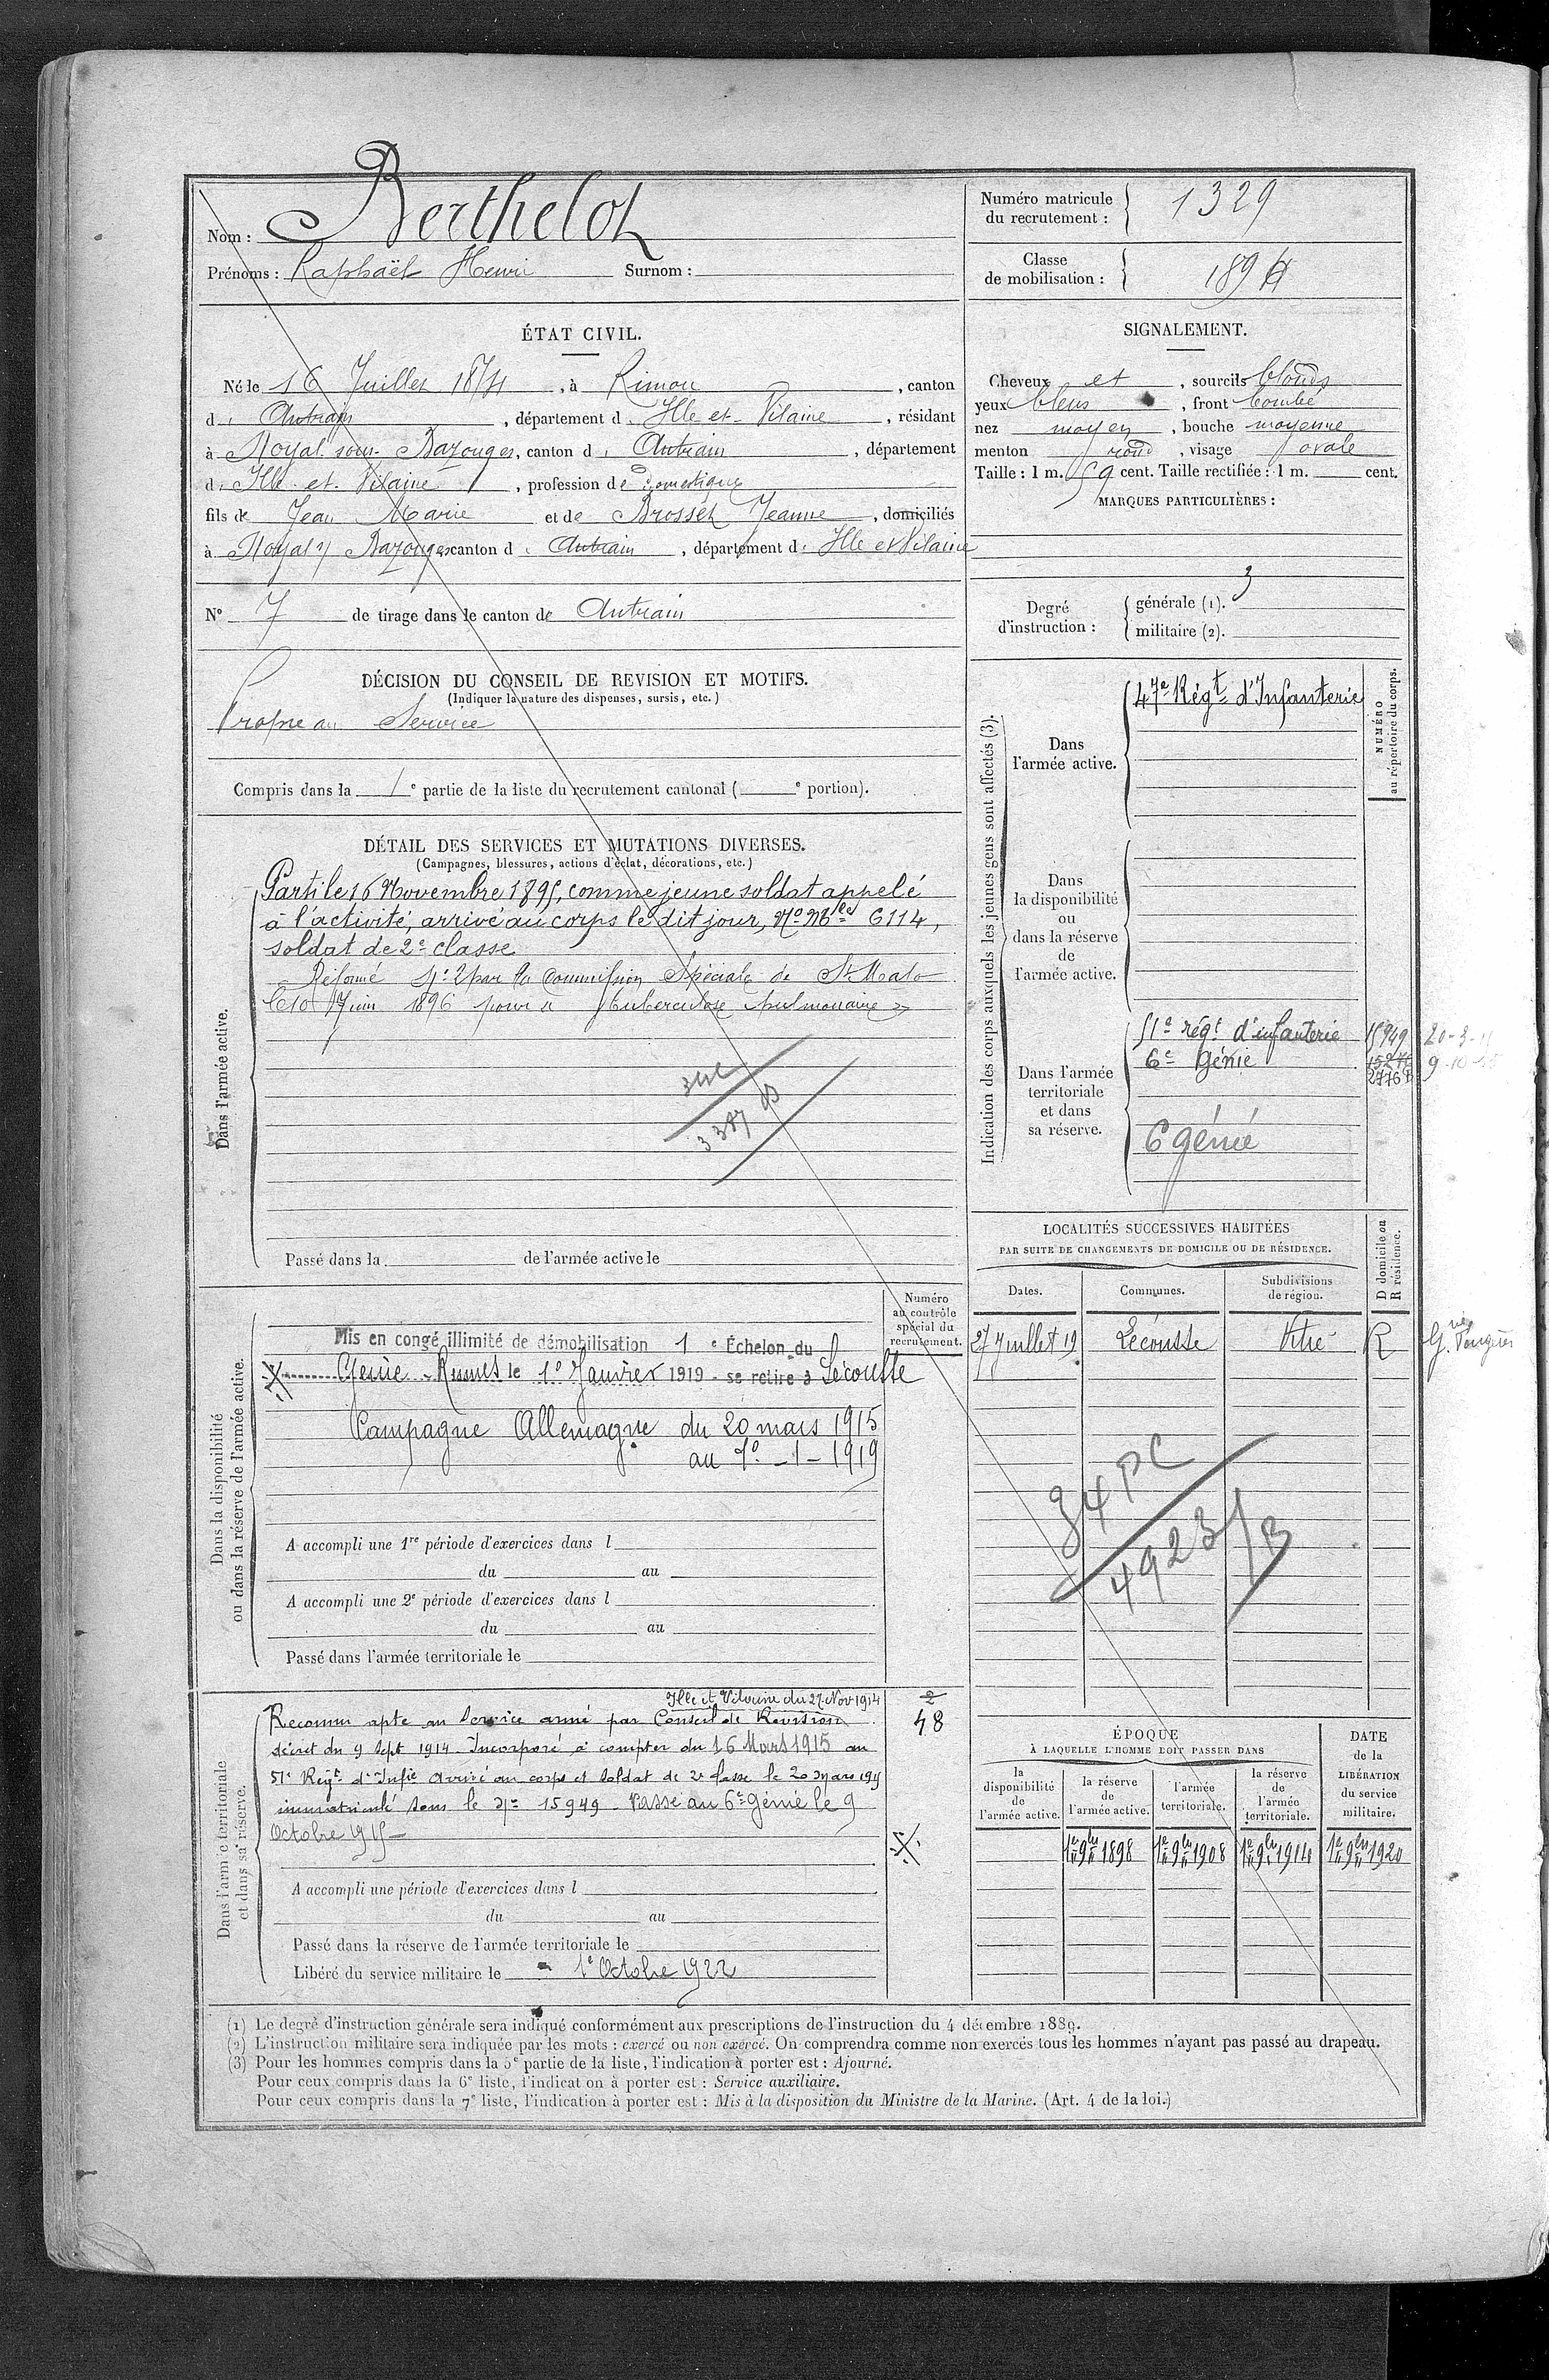 Nom : Berthelot
Prénoms : Raphaël Henri Surnom :
Numéro matricule du recrutement : 1329
Classe de mobilisation : 1894
ÉTAT CIVIL.
Né le 16 Juillet 1874, à Rimou, canton
d' Antrain, département d' Ille et Vilaine, résidant
à Noyal sous Bazouges, canton d' Antrain, département
d' Ille et Vilaine, profession de domestique
fils de Jean Marie et de Brosset Jeanne, domiciliés
à Noyal s/ Bazouges canton d' Antrain, département d' Ille et Vilaine
N° 7 de tirage dans le canton de Antrain
SIGNALEMENT.
Cheveux et, sourcils blonds
yeux bleus, front bombé
nez moyen, bouche moyenne
menton rond, visage ovale
Taille : 1 m. 59 cent. Taille rectifiée : 1 m. cent.
MARQUES PARTICULIÈRES :
Degré d'instruction : générale (1). 3
militaire (2).
DÉCISION DU CONSEIL DE REVISION ET MOTIFS.
(Indiquer la nature des dispenses, sursis, etc.)
Propre au Service
Compris dans la 1e partie de la liste du recrutement cantonal ( e portion).
DÉTAIL DES SERVICES ET MUTATIONS DIVERSES.
(Campagnes, blessures, actions d'éclat, décorations, etc.)
Dans l'armée active.
Parti le 16 Novembre 1895, comme jeune soldat appelé
à l'activité, arrivé au corps le dit jour, No Mle 6114,
soldat de 2e classe
Réformé No 2 par la Commission Spéciale de St Malo
le 10 Juin 1896 pour " tuberculose pulmonaire "
Passé dans la de l'armée active le
Indication des corps auxquels les jeunes gens sont affectés (3).
NUMÉRO au répertoire du corps.
Dans l'armée active.
47e Régt d'Infanterie
Dans la disponibilité ou dans la réserve de l'armée active.
Dans l'armée territoriale et dans sa réserve.
51e régt d'infanterie 15949 20-3-15
6e Génie 9-10-15
6 génie
LOCALITÉS SUCCESSIVES HABITÉES
PAR SUITE DE CHANGEMENTS DE DOMICILE OU DE RÉSIDENCE.
Dates. Communes. Subdivisions de région. D domicile ou R résidence.
27 Juillet 19 Lécousse Vitré R
84 PC
4923 / B
Dans la disponibilité ou dans la réserve de l'armée active.
Numéro au contrôle spécial du recrutement.
Mis en congé illimité de démobilisation 1 e Échelon du 6
Génie Rennes le 10 Janvier 1919 - se retire à Lécousse
Campagne Allemagne du 20 mars 1915
au 10-1-1919
A accompli une 1re période d'exercices dans l
du au
A accompli une 2e période d'exercices dans l
du au
Passé dans l'armée territoriale le
Dans l'armée territoriale et dans sa réserve.
Ille et Vilaine du 27 Nov 1914
Reconnu apte au Service armé par Conseil de Revision
décret du 9 Sept 1914. Incorporé à compter du 16 Mars 1915 au
51e Régt d'Infie Arrivé au corps et soldat de 2e classe le 20 mars 1915
immatriculé sous le No 15949 - Passé au 6e Génie le 9
Octobre 1915 -
2
48
A accompli une période d'exercices dans l
du au
Passé dans la réserve de l'armée territoriale le
Libéré du service militaire le 1e Octobre 1922
ÉPOQUE
À LAQUELLE L'HOMME DOIT PASSER DANS
la disponibilité de l'armée active. la réserve de l'armée active. l'armée territoriale. la réserve de l'armée territoriale.
DATE de la LIBÉRATION du service militaire.
1er 9bre 1898 1er 9bre 1908 1er 9bre 1914 1er 9bre 1920
(1) Le degré d'instruction générale sera indiqué conformément aux prescriptions de l'instruction du 4 décembre 1889.
(2) L'instruction militaire sera indiquée par les mots : exercé ou non exercé. On comprendra comme non exercés tous les hommes n'ayant pas passé au drapeau.
(3) Pour les hommes compris dans la 5e partie de la liste, l'indication à porter est : Ajourné.
Pour ceux compris dans la 6e liste, l'indication à porter est : Service auxiliaire.
Pour ceux compris dans la 7e liste, l'indication à porter est : Mis à la disposition du Ministre de la Marine. (Art. 4 de la loi.)